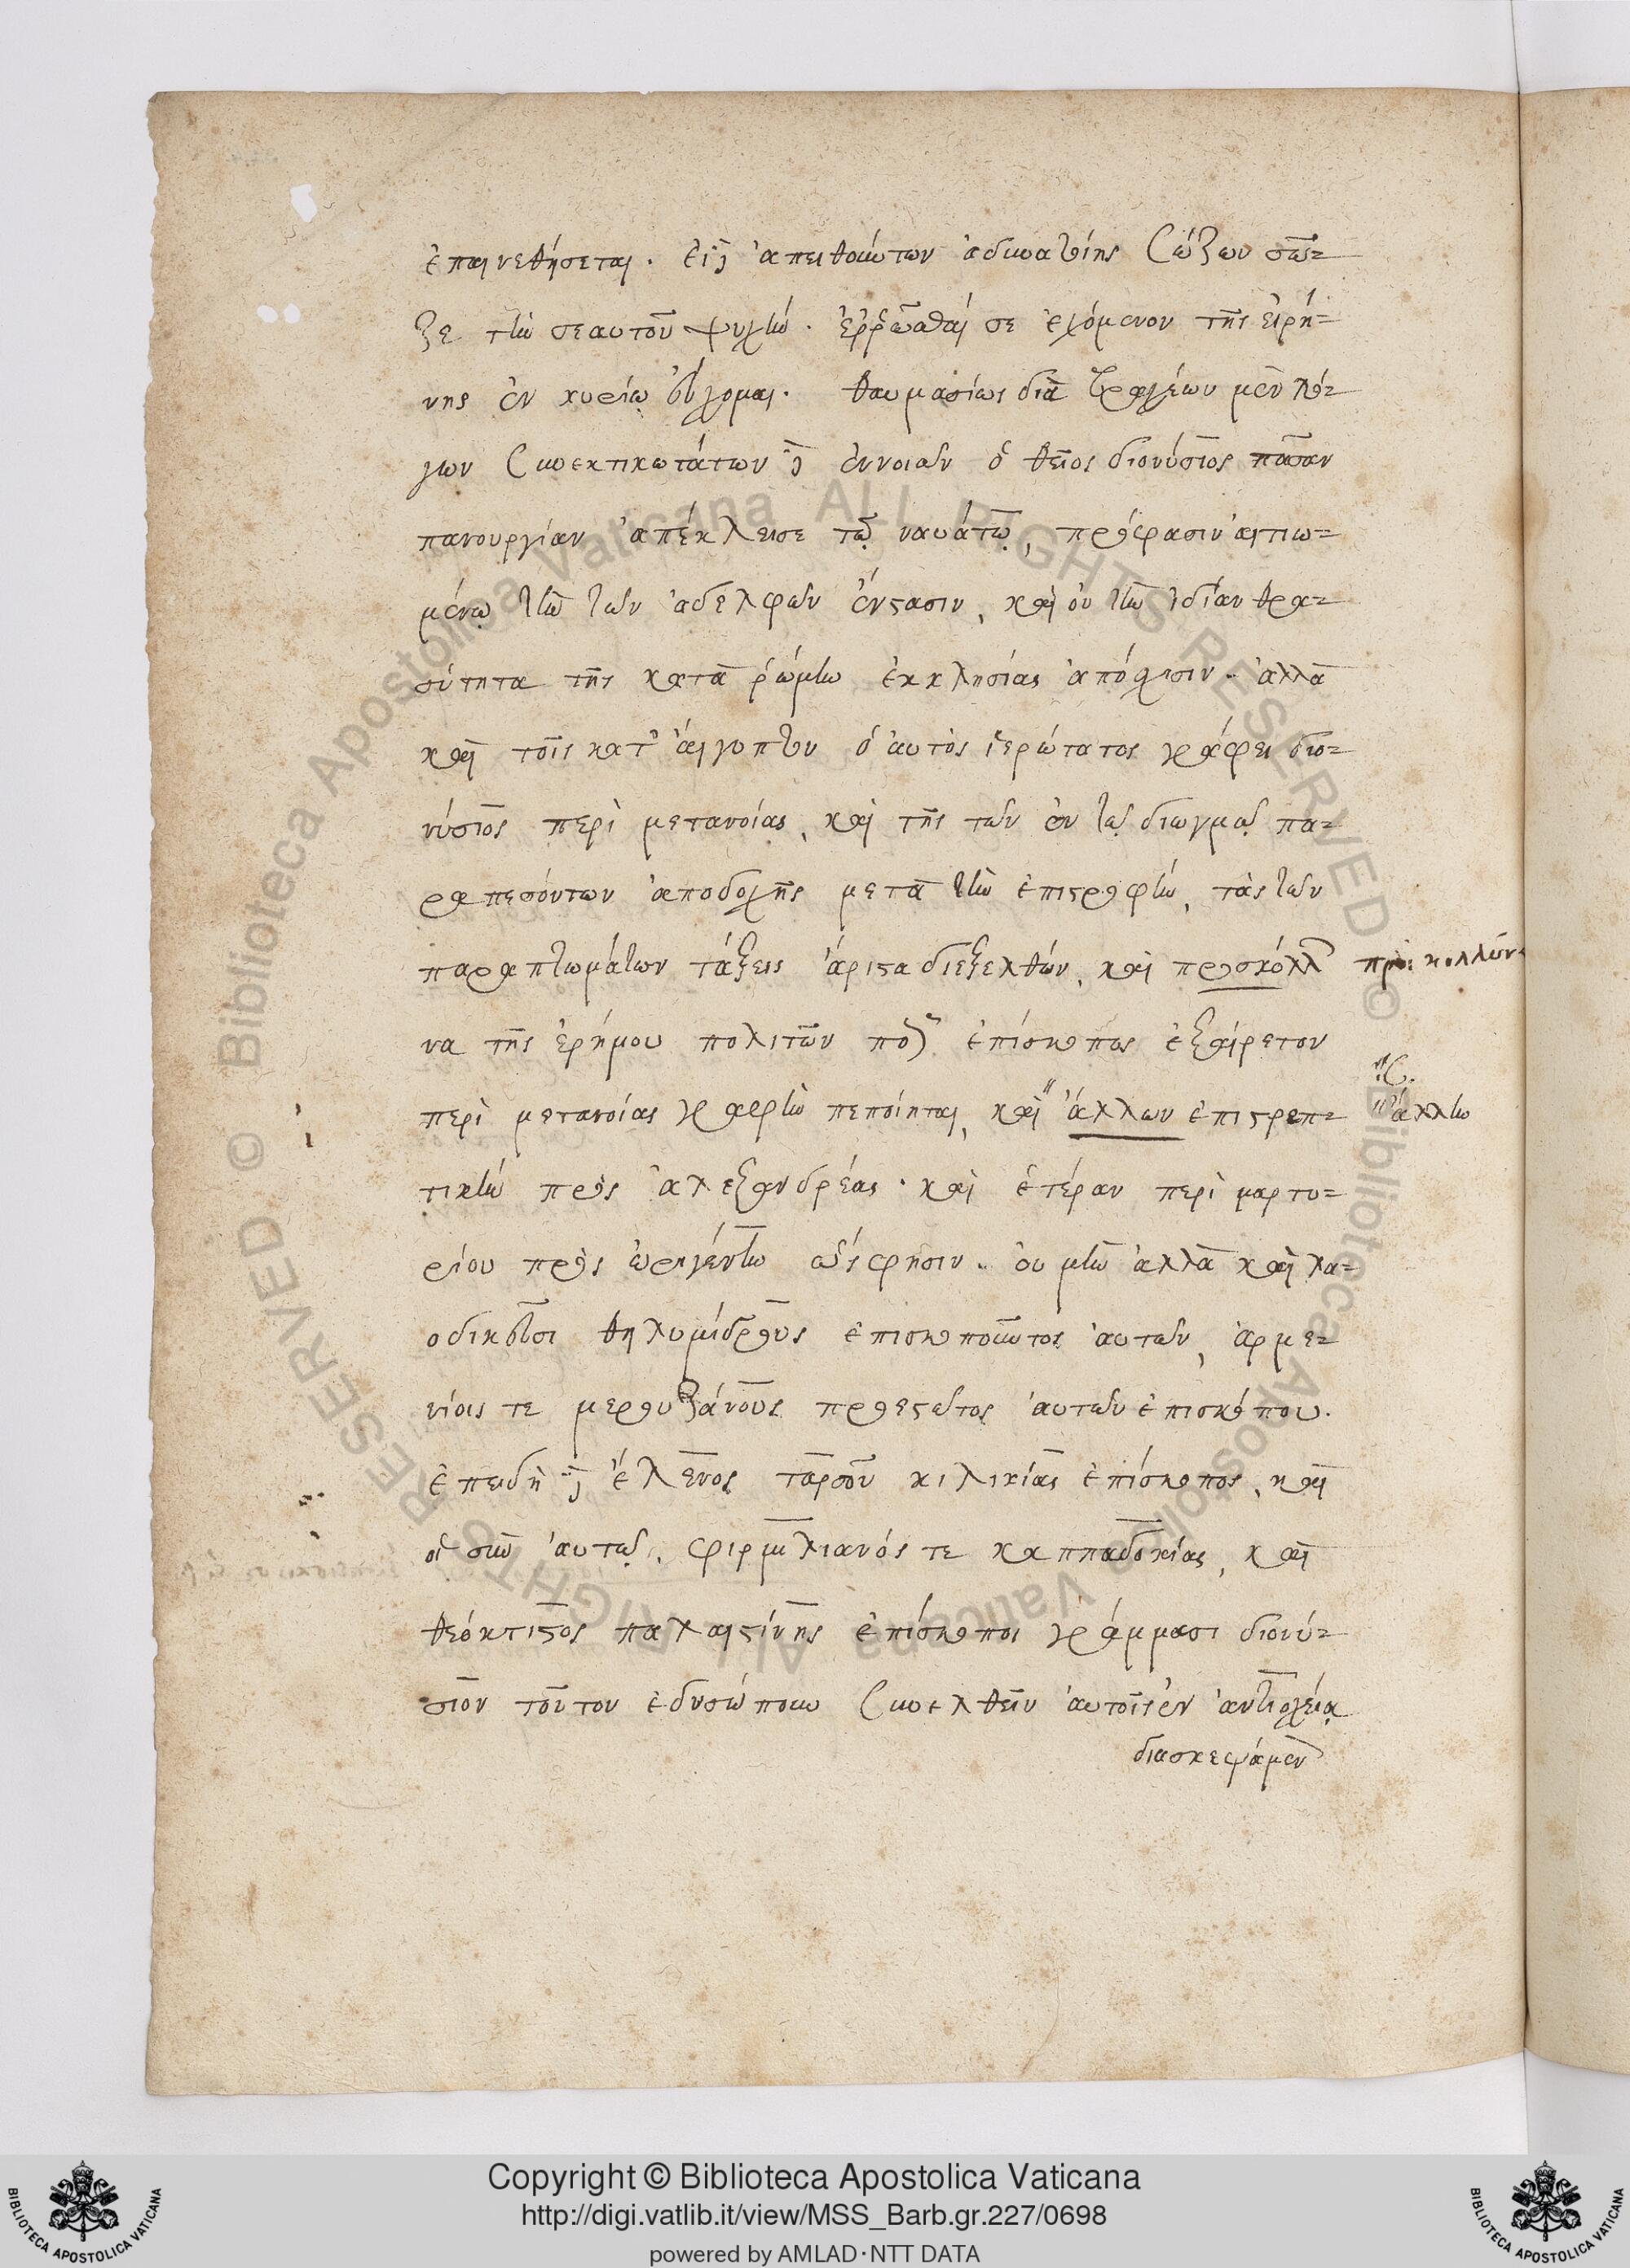 ἐπαινεθήσεται. εἰ δ' ἀπειθούντων ἀδυνατοίης σώζων σῶ-
ζε τὴν σεαυτοῦ ψυχήν. ἐρρῶσθαί σε ἐχόμενον τῆς εἰρή-
νης ἐν κυρίῳ εὔχομαι. θαυμασίως διὰ βραχέων μὲν λό-
γων συνεκτικωτάτων δὲ ἐννοιῶν ὁ θεῖος διονύσιος πᾶσαν
πανουργίαν ἀπέκλεισε τῷ ναυάτῳ, πρόφασιν αἰτιω-
μένῳ τὴν τῶν ἀδελφῶν ἔνστασιν, καὶ οὐ τὴν ἰδίαν θρα-
σύτητα τῆς κατὰ ῥώμην ἐκκλησίας ἀπόσχισιν. ἀλλὰ
καὶ τοῖς κατ' αἴγυπτον ὁ αὐτὸς ἱερώτατος γράφει διο-
νύσιος περὶ μετανοίας, καὶ τῆς τῶν ἐν τῷ διωγμῷ πα-
ραπεσόντων ἀποδοχῆς μετὰ τὴν ἐπιστροφήν, τὰς τῶν
παραπτωμάτων τάξεις ἄριστα διεξελθών, καὶ προσκόλλ
πρὸς κολλώνα
να τῆς ἐρήμου πολιτῶν ἐπίσκοπος ἐξαίρετον
περὶ μετανοίας γραφὴν πεποίηται, καὶ ἄλλων ἐπιστρεπ-
ἄλλην
τικὴν πρὸς ἀλεξανδρέας. καὶ ἑτέραν περὶ μαρτυ-
ρίου πρὸς ὠριγένην ὡς φησιν. οὐ μὴν ἀλλὰ καὶ λα-
οδικεῦσι θηλυμίδρους ἐπισκοποῦντος αὐτῶν, ἀρμε-
νίοις τε μερουζάνους προεστῶτος αὐτῶν ἐπισκόπου.
ἐπειδὴ δὲ ἕλενος ταρσοῦ κιλικίας ἐπίσκοπος, καὶ
οἱ σὺν αὐτῷ, φιρμιλιανός τε καππαδοκίας, καὶ
θεόκτιστος παλαιστίνης ἐπίσκοποι γράμμασι διονύ-
σιον τοῦτον ἐδυσώπουν συνελθεῖν αὐτοῖς ἐν ἀντιοχείᾳ
διασκεψάμεν
Copyright © Biblioteca Apostolica Vaticana
http://digi.vatlib.it/view/MSS_Barb.gr.227/0698
powered by AMLAD·NTT DATA